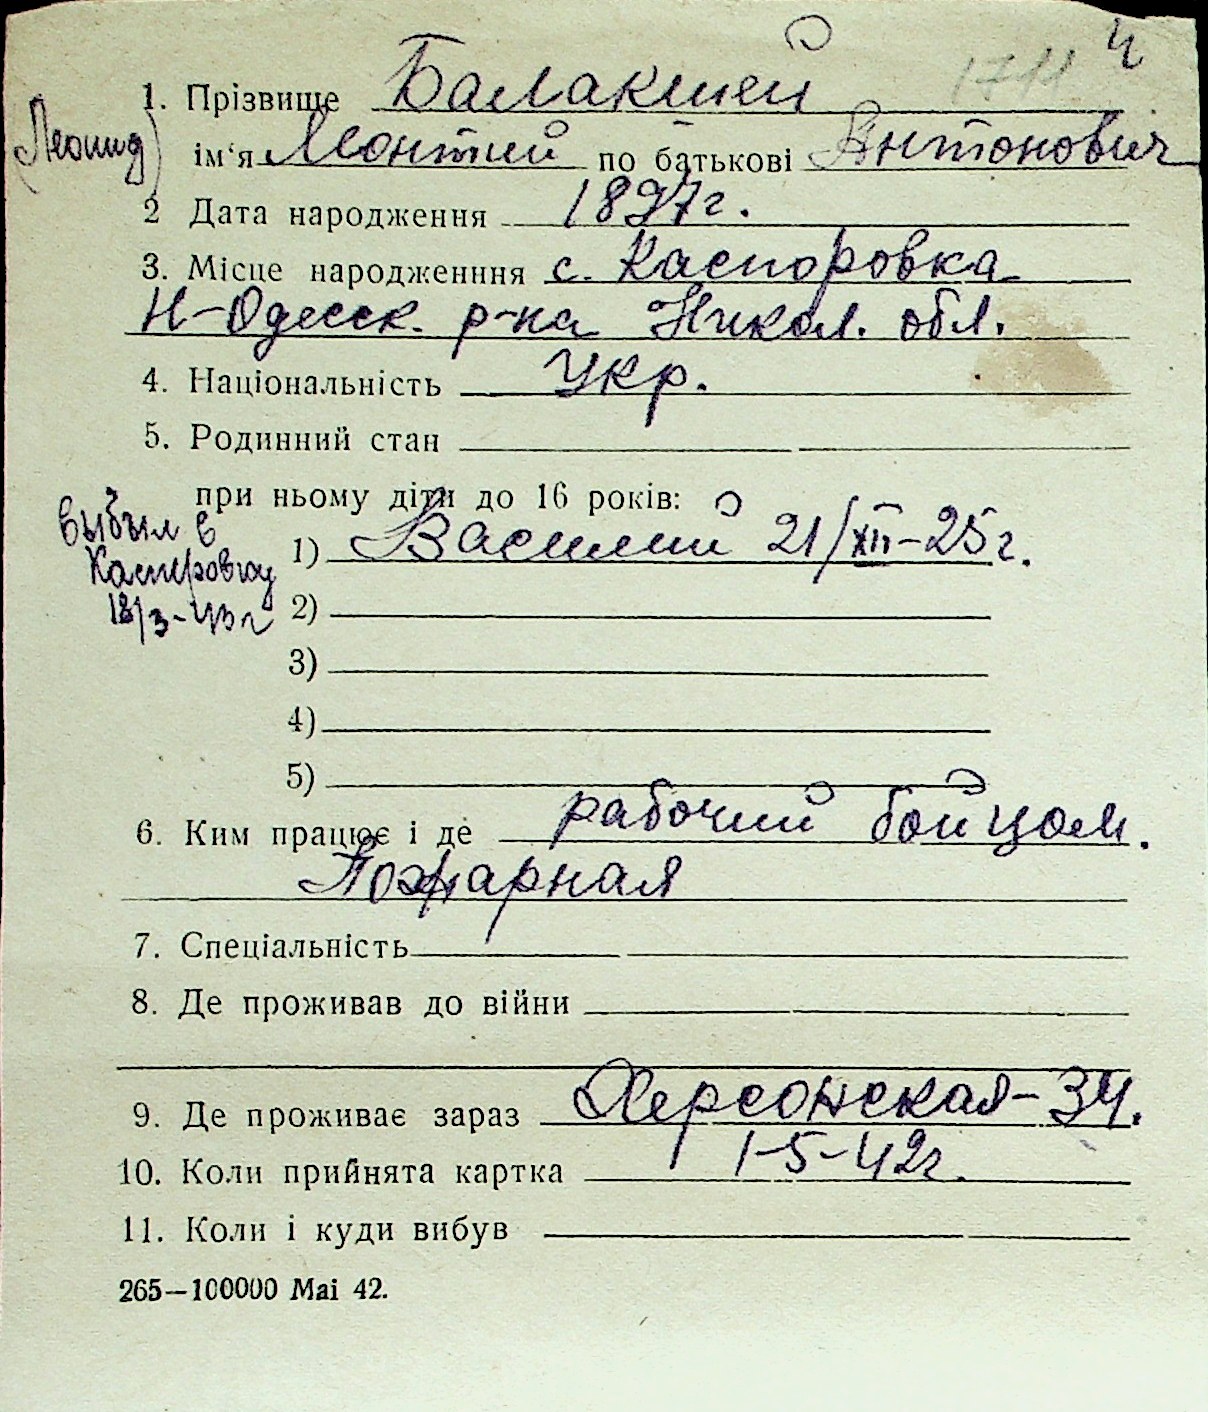 1711 ч
1. Прізвище Балакшей
(Леонид) ім'я Леонтий по батькові Антонович
2 Дата народження 1897г.
3. Місце народженння с. Каспоровка
Н-Одесск. р-на Никол. обл.
4. Національність Укр.
5. Родинний стан
при ньому діти до 16 років:
выбыл в
Каспровку
18/3-43г
1) Василий 21/XII-25г.
2)
3)
4)
5)
6. Ким працює і де рабочий бойцом.
Пожарная
7. Спеціальність
8. Де проживав до війни
9. Де проживає зараз Херсонская-34.
10. Коли прийнята картка 1-5-42г.
11. Коли і куди вибув
265—100000 Mai 42.